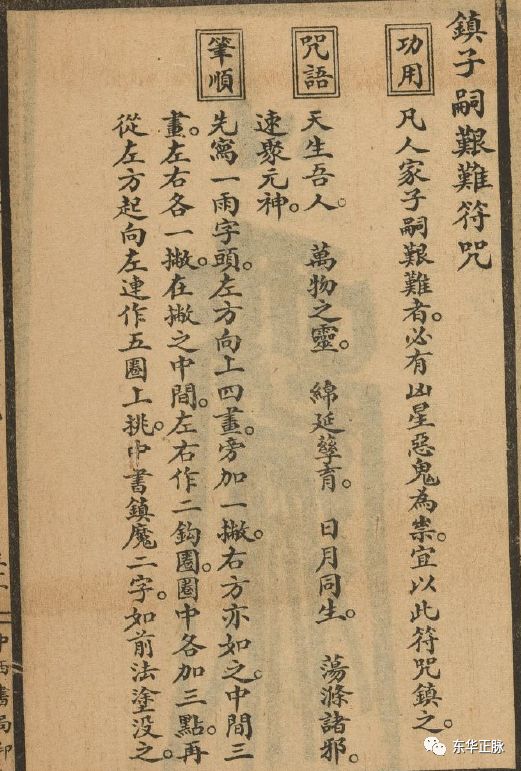 鎮子嗣艱難符咒
功用
凡人家子嗣艱難者。必有凶星惡鬼為祟。宜以此符咒鎮之。
咒語
天生吾人。 萬物之靈。 綿延孳育。 日月同生。 蕩滌諸邪。
速聚元神。
筆順
先寫一雨字頭。左方向上四畫。旁加一撇。右方亦如之。中間三
畫。左右各一撇。在撇之中間。左右作二鈎圈。圈中各加三點。再
從左方起向左連作五圈上挑。中書鎮魔二字。如前法塗没之。
中西書局印
东华正脉